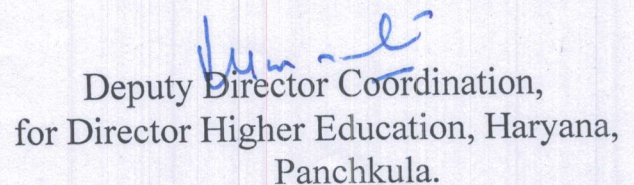 Deputy Director Coordination,
for Director Higher Education, Haryana,
Panchkula.